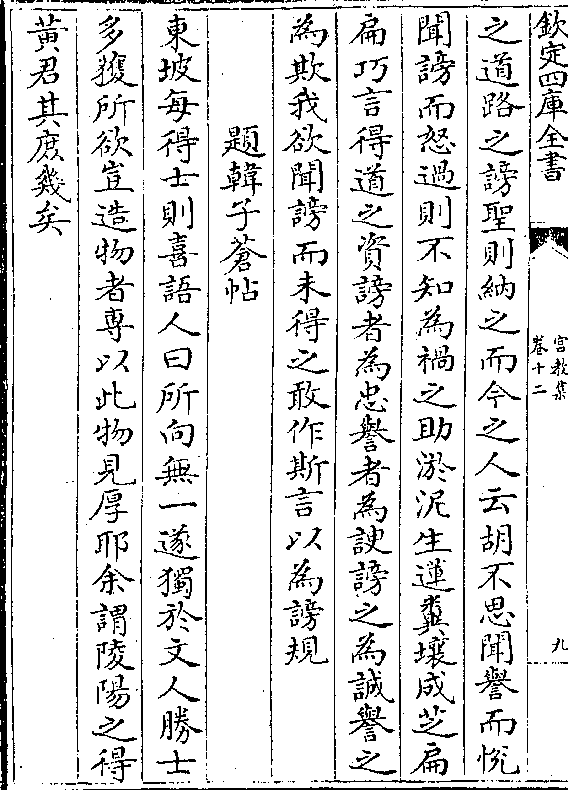 欽定四庫全書
宫教集
卷十二
九
之道路之謗聖則納之而今之人云胡不思聞譽而悦
聞謗而怒過則不知為禍之助淤泥生蓮糞壤成芝扁
扁巧言得道之資謗者為忠譽者為諛謗之為誠譽之
為欺我欲聞謗而未得之敢作斯言以為謗規
題韓子蒼帖
東坡每得士則喜語人曰所向無一遂獨於文人勝士
多獲所欲豈造物者專以此物見厚耶余謂陵陽之得
黄君其庶幾矣